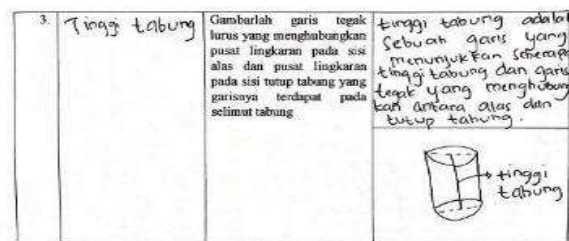 3.
Tinggi tabung
Gambarlah garis tegak
lurus yang menghubungkan
pusat lingkaran pada sisi
alas dan pusat lingkaran
pada sisi tutup tabung yang
garisnya terdapat pada
selimut tabung
tinggi tabung adala
Sebuah garis yang
menunjukkan seberapa
tinggi tabung dan garis
tegak yang menghubung
kan antara alas dan
tutup tabung.
tinggi
tabung